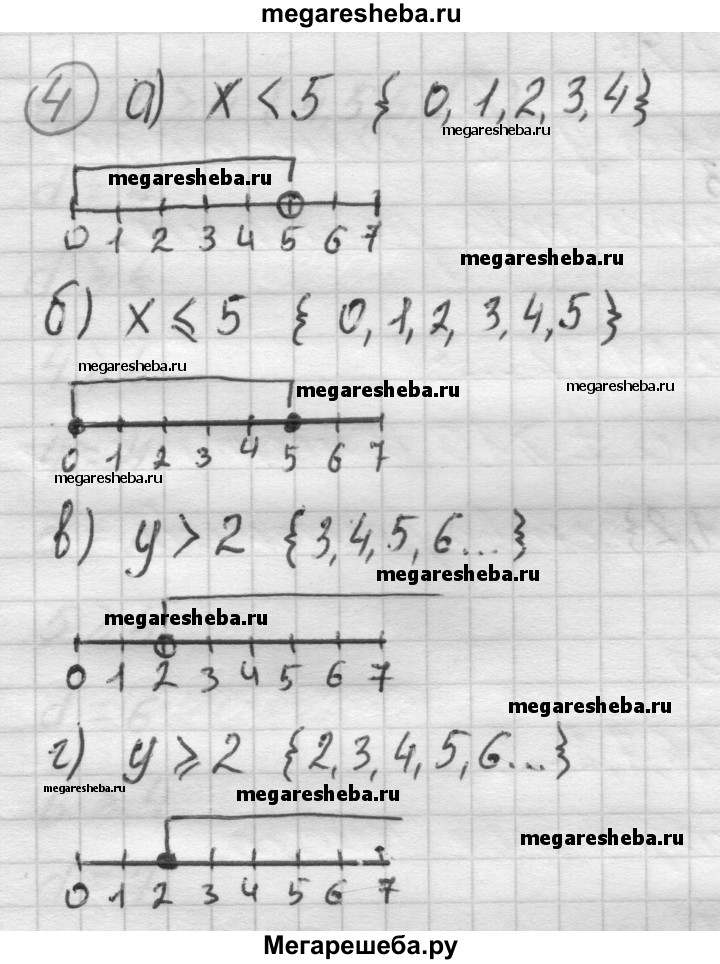 megaresheba.ru
4 а) x < 5 { 0, 1, 2, 3, 4}
megaresheba.ru
megaresheba.ru
0 1 2 3 4 5 6 7
megaresheba.ru
б) x ⩽ 5 { 0, 1, 2, 3, 4, 5 }
megaresheba.ru
megaresheba.ru
megaresheba.ru
0 1 2 3 4 5 6 7
megaresheba.ru
в) y > 2 {3, 4, 5, 6...}
megaresheba.ru
megaresheba.ru
0 1 2 3 4 5 6 7
megaresheba.ru
г) y ⩾ 2 {2, 3, 4, 5, 6...}
megaresheba.ru
megaresheba.ru
megaresheba.ru
0 1 2 3 4 5 6 7
Мегарешеба.ру